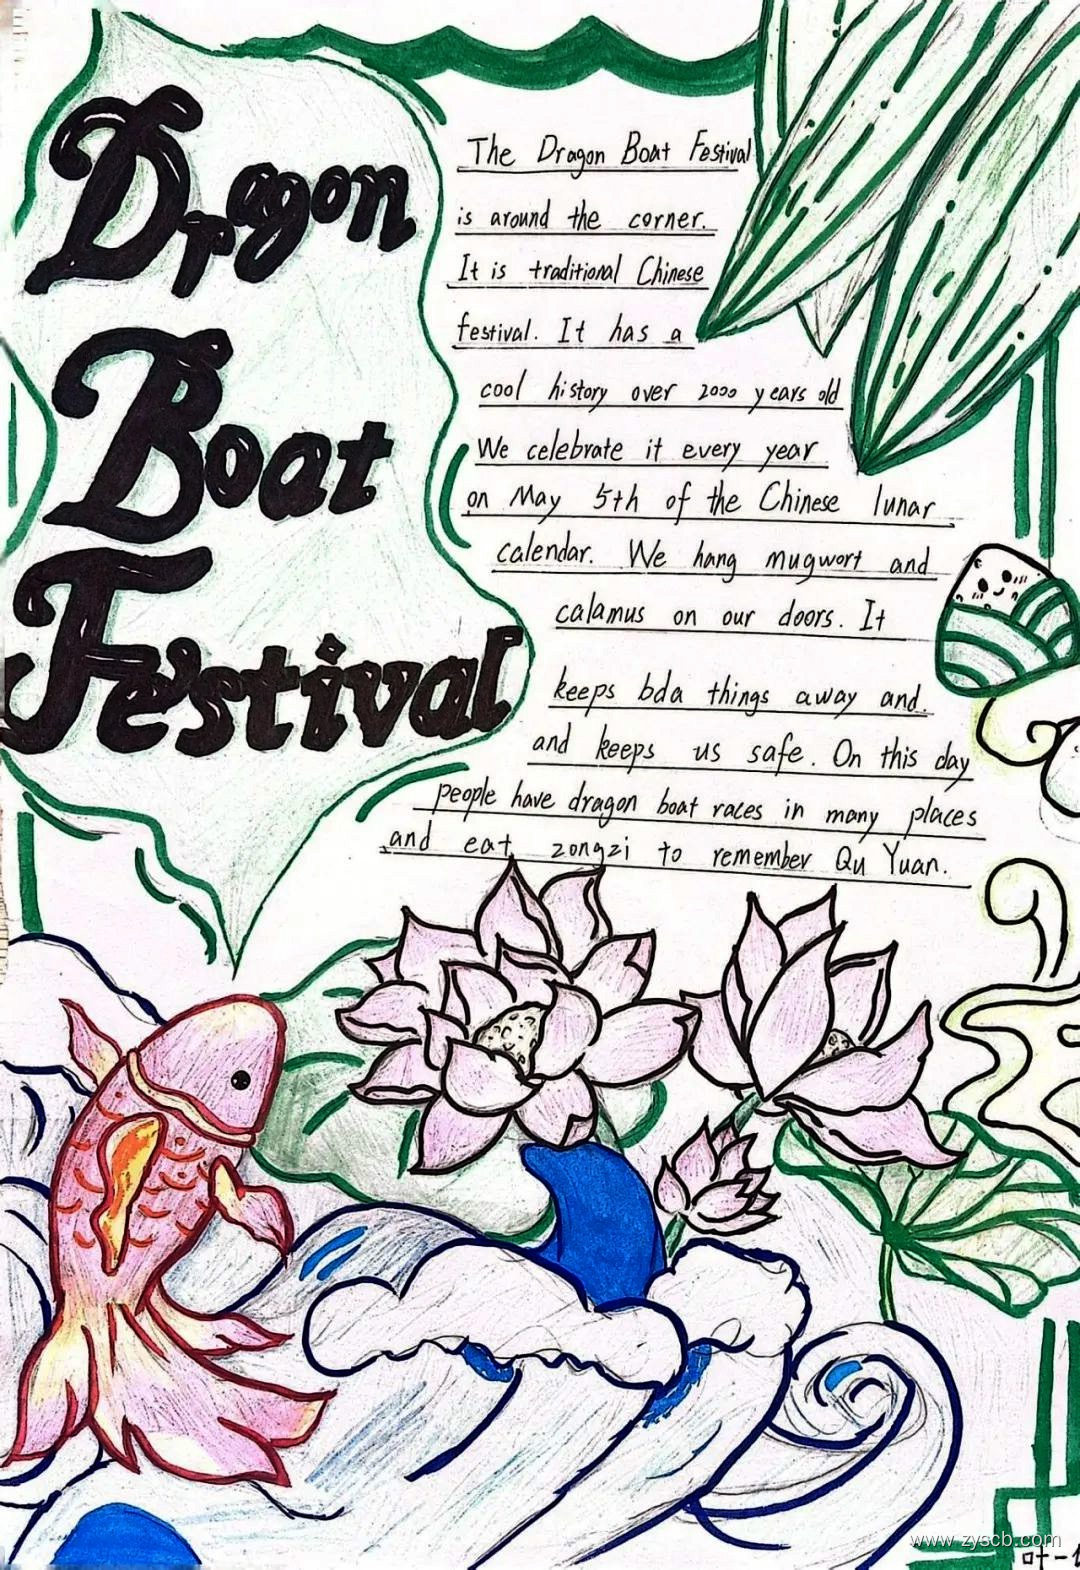 Dragon
Boat
Festival
The Dragon Boat Festival
is around the corner.
It is traditional Chinese
festival. It has a
cool history over 2000 years old
We celebrate it every year
on May 5th of the Chinese lunar
calendar. We hang mugwort and
calamus on our doors. It
keeps bda things away and.
and keeps us safe. On this day
people have dragon boat races in many places
and eat zongzi to remember Qu Yuan.
www.zyscb.com
叶一